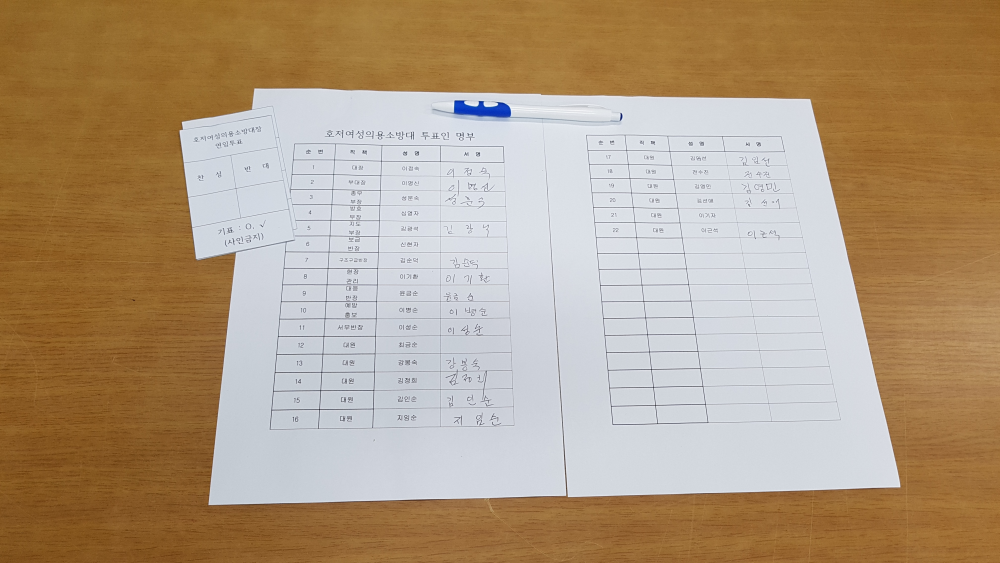 호저여성의용소방대장
연임투표
찬 성 반 대
기표 : O, ✓
(사인금지)
호저여성의용소방대 투표인 명부
순 번 직 책 성 명 서 명
1 대장 이정숙 이정숙
2 부대장 이명신 이명신
3 총무부장 성문숙
4 방호부장 심영자
5 지도부장 김광석 김광석
6 보급반장 신현자
7 구조구급반장 김순덕 김순덕
8 현장관리 이기환 이기환
9 대응반장 윤금순
10 예방홍보 이병순 이병순
11 서무반장 이상순 이상순
12 대원 최금순
13 대원 강봉숙 강봉숙
14 대원 김정희 김정희
15 대원 김인순 김인순
16 대원 지임순 지임순
순 번 직 책 성 명 서 명
17 대원 김명선
18 대원 전수진 전수진
19 대원 김영민 김영민
20 대원 김선애 김선애
21 대원 이기자
22 대원 이근석 이근석